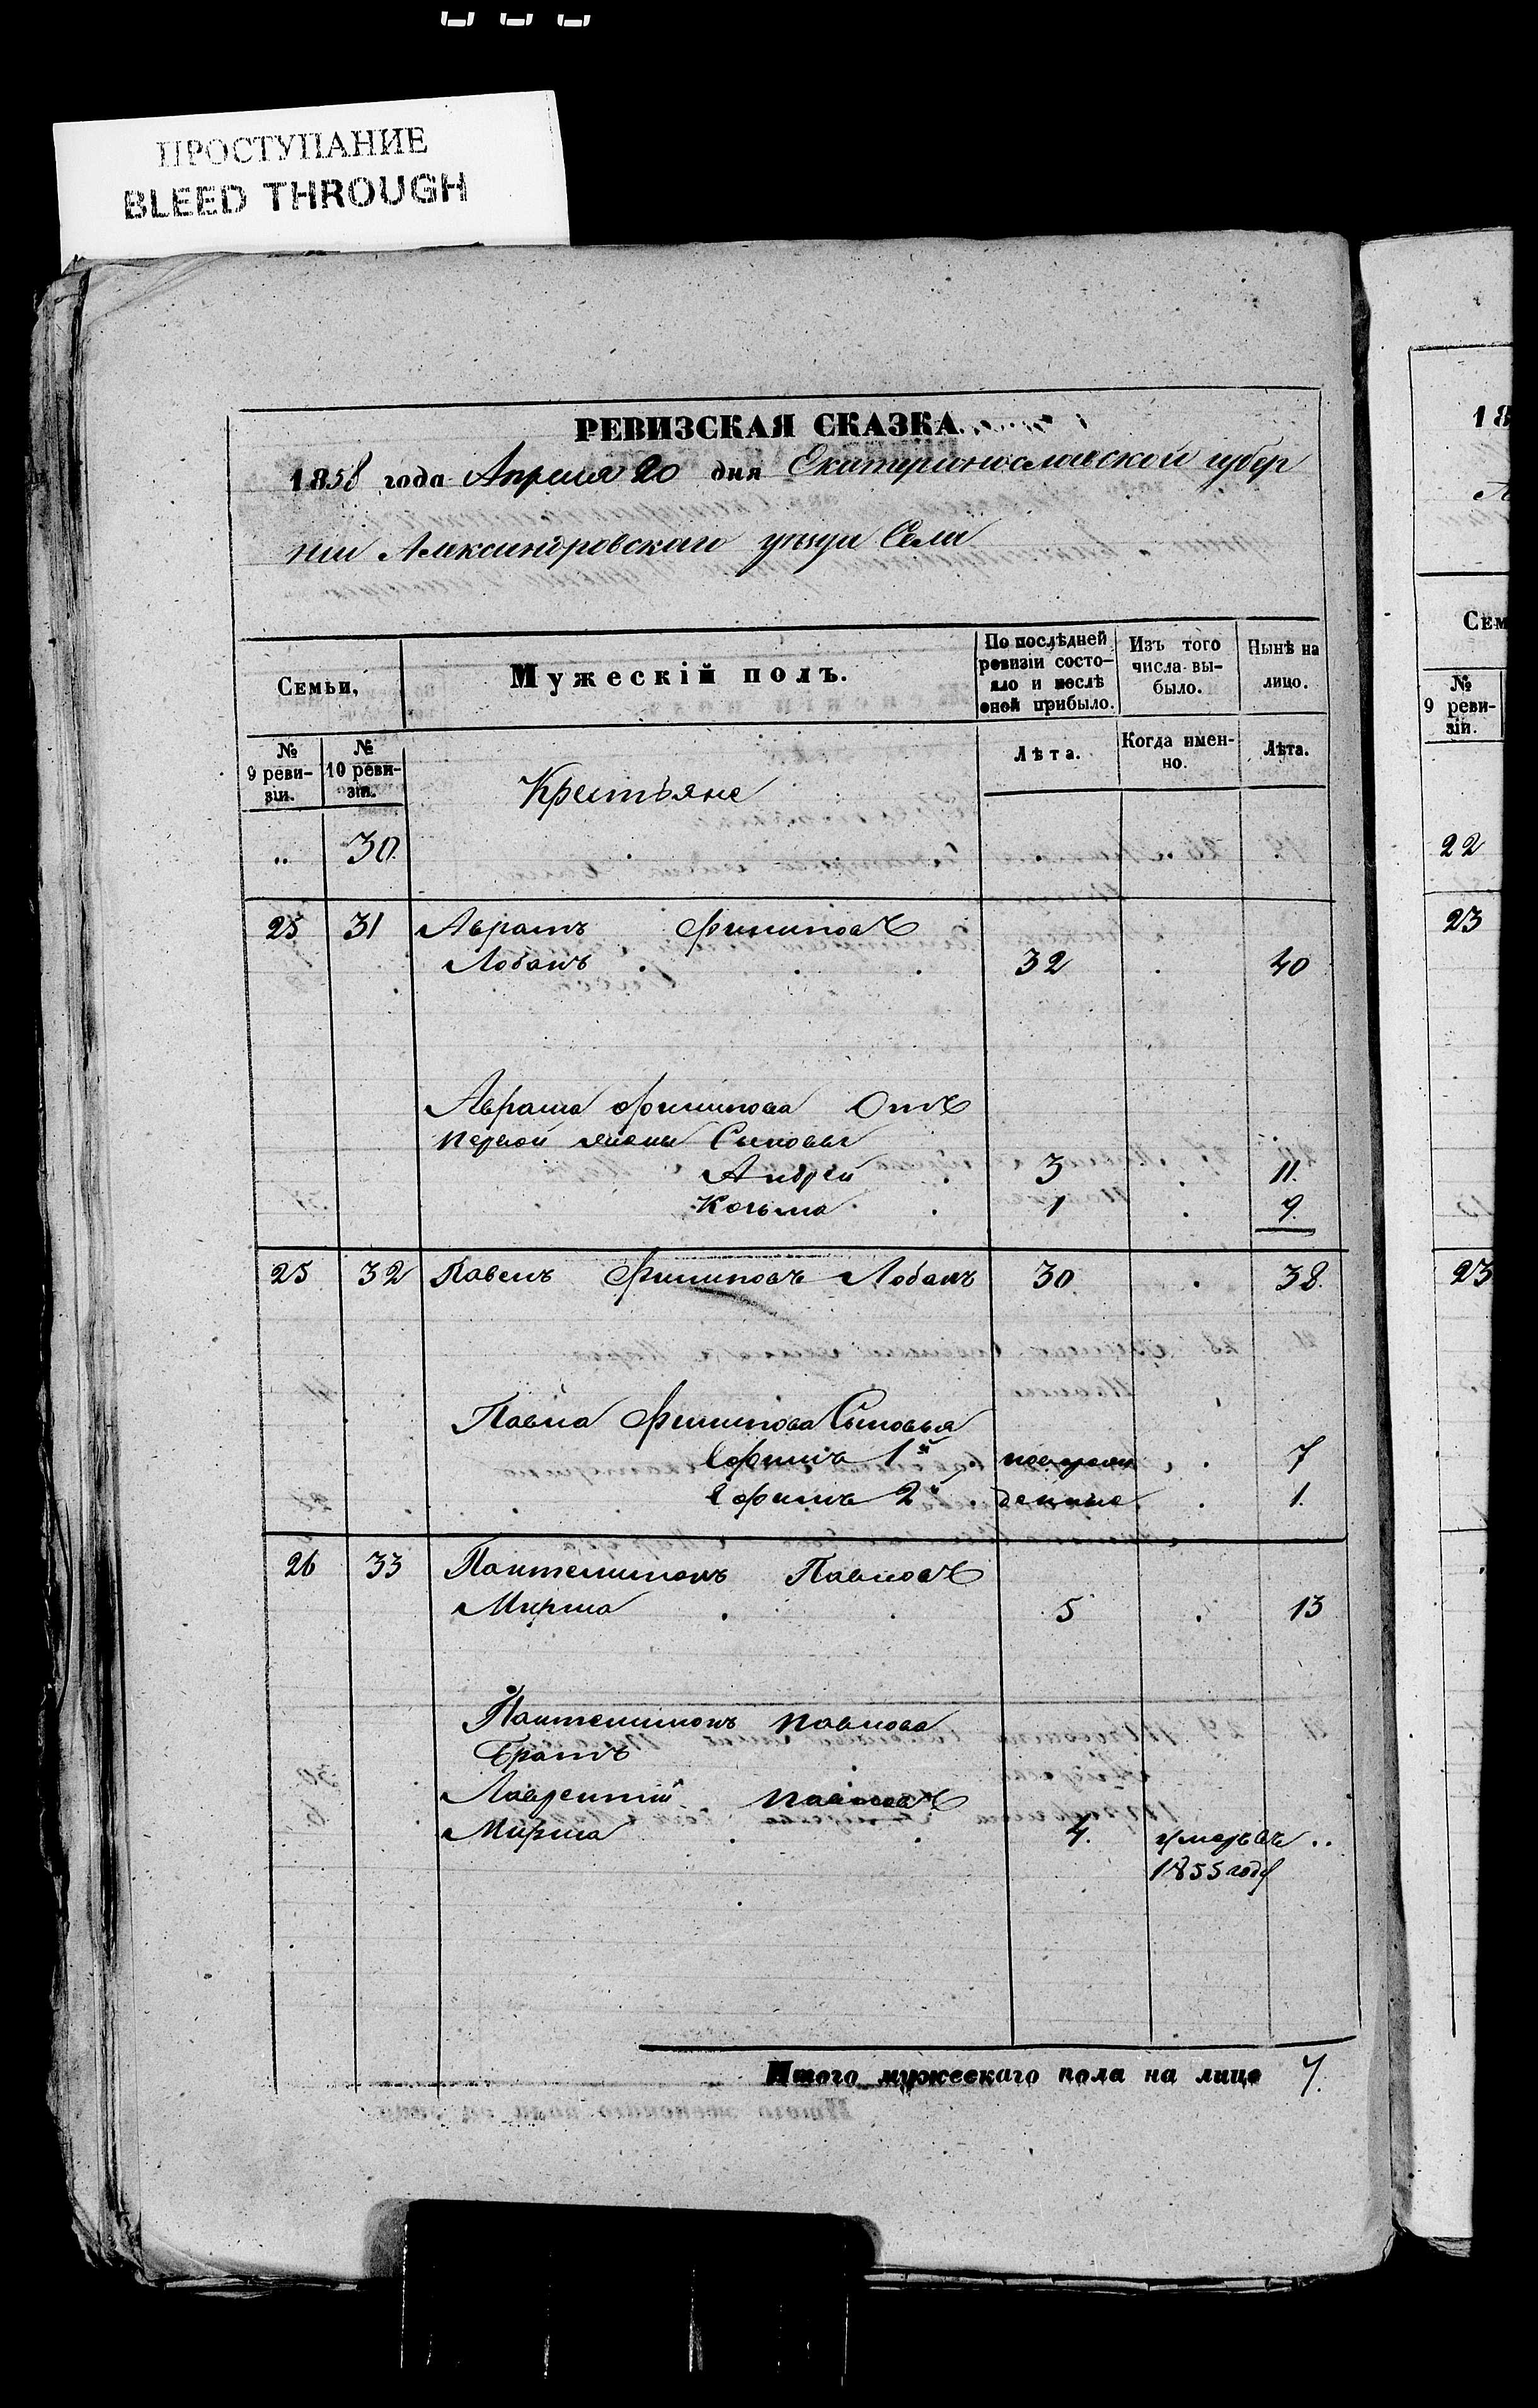 ПРОСТУПАНИЕ
BLEED THROUGH
РЕВИЗСКАЯ СКАЗКА
1858 года Апреля 20 дня Екатеринославской губер
нии Александровскаго уезда Села
Семьи,
Мужескій полъ.
По послѣдней ревизіи состо-
яло и послѣ
оной прибыло.
Изъ того
числа вы-
было.
Нынѣ на
лицо.
№
9 реви-
зіи.
№
10 реви-
зіи.
Лѣта.
Когда имен-
но.
Лѣта.
Крестьяне
„ 30.
25 31 Аврамъ Филиповъ
Лобанъ . . . 32 . 40
Аврама Филипова Отъ
первой жены Сыновья
Андрей . 3 . 11.
Козьма . 1 . 9.
25 32 Павелъ Филиповъ Лобанъ 30 . 38.
Павла Филипова Сыновья
Ефимъ 1й . новорож . 7
Ефимъ 2й . денные . 1.
26 33 Пантелимонъ Павловъ
Мирша . . 5 . 13
Пантелимонъ Павлова
Братъ
Лаврентій Павловъ
Мирша . . 4. умеръ въ ..
1855 году
Итого мужескаго пола на лицо 7.
18
Сем
№
9 реви-
зіи.
22
23
23